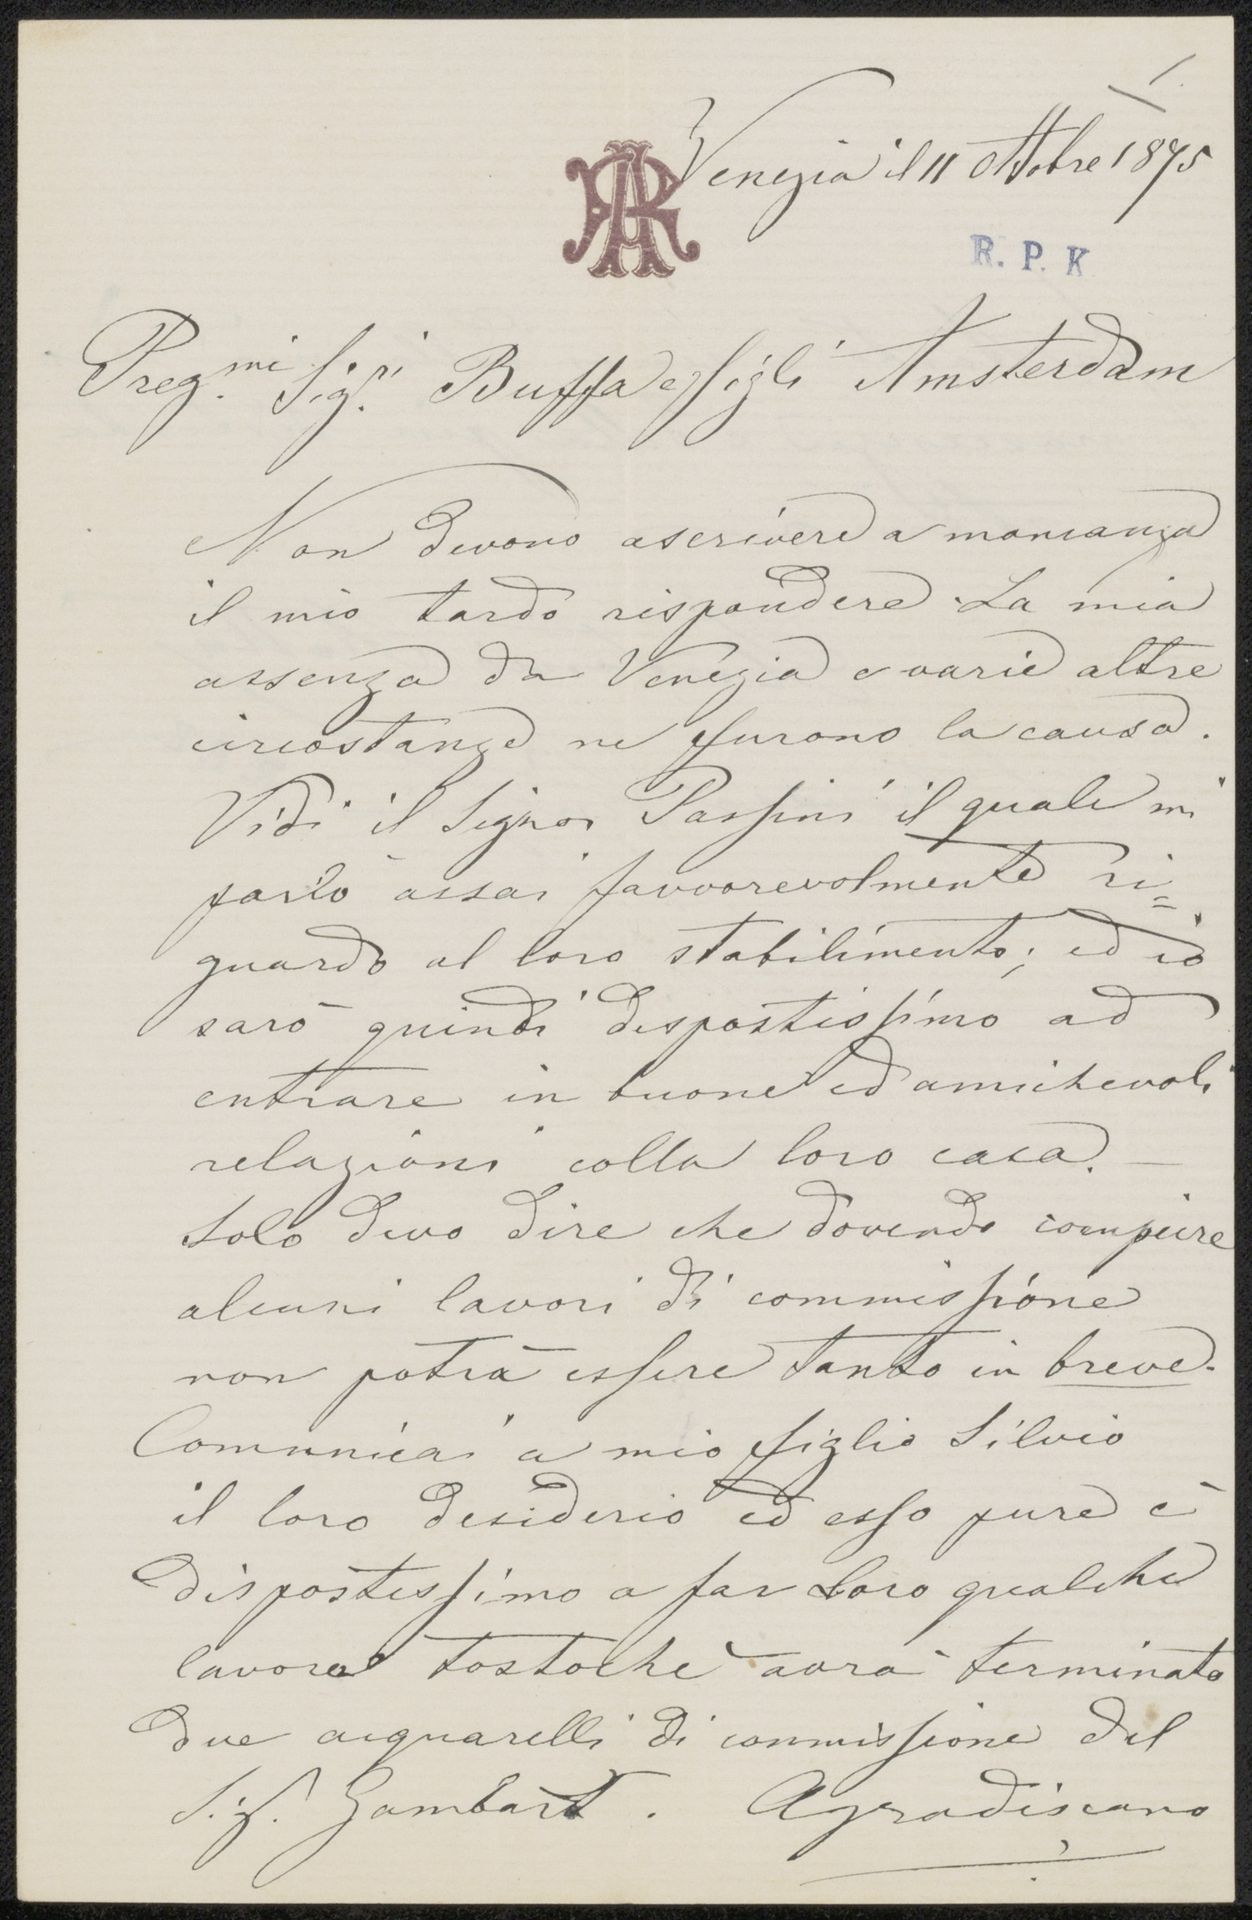 Venezia il 11 Ottobre 1875
AR
R. P. K
Preg.mi Sig.ri Buffa e figli Amsterdam
Non devono ascrivere a mancanza
il mio tardo rispondere. La mia
assenza da Venezia e varie altre
circostanze ne furono la causa.
Vidi il Signor Passini il quale mi
parlò assai favvorevolmente ri=
guardo al loro stabilimento; ed io
sarò quindi dispostissimo ad
entrare in buone ed amichevoli
relazioni colla loro casa. —
Solo devo dire che dovendo compiere
alcuni lavori di commissione
non potrà essere tanto in breve.
Comunicai a mio figlio Silvio
il loro desiderio ed esso pure è
dispostissimo a far loro qualche
lavoro tostochè avrà terminato
due acquarelli di commissione del
Sig. Gambart. Agradiscano